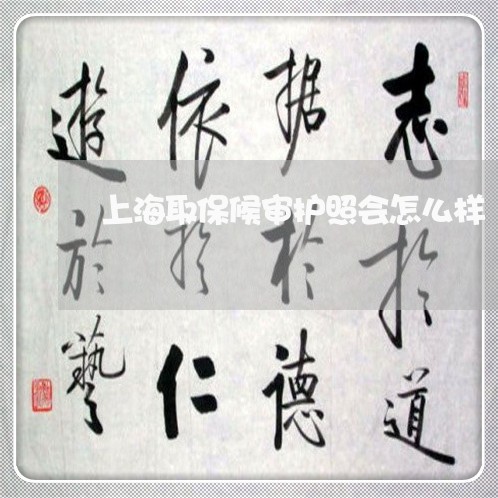 志於道
据於德
依於仁
遊於藝
上海取保候审护照会怎么样